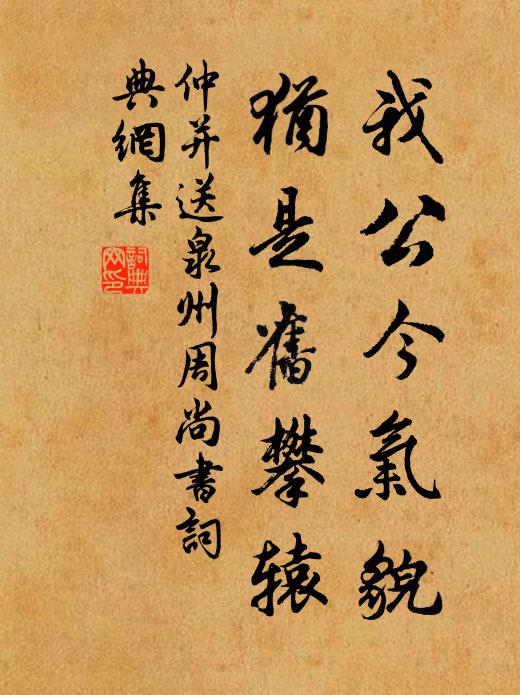 我公今氣貌
猶是舊攀辕
仲并送泉州周尚書詞
典網集
詞典
网印